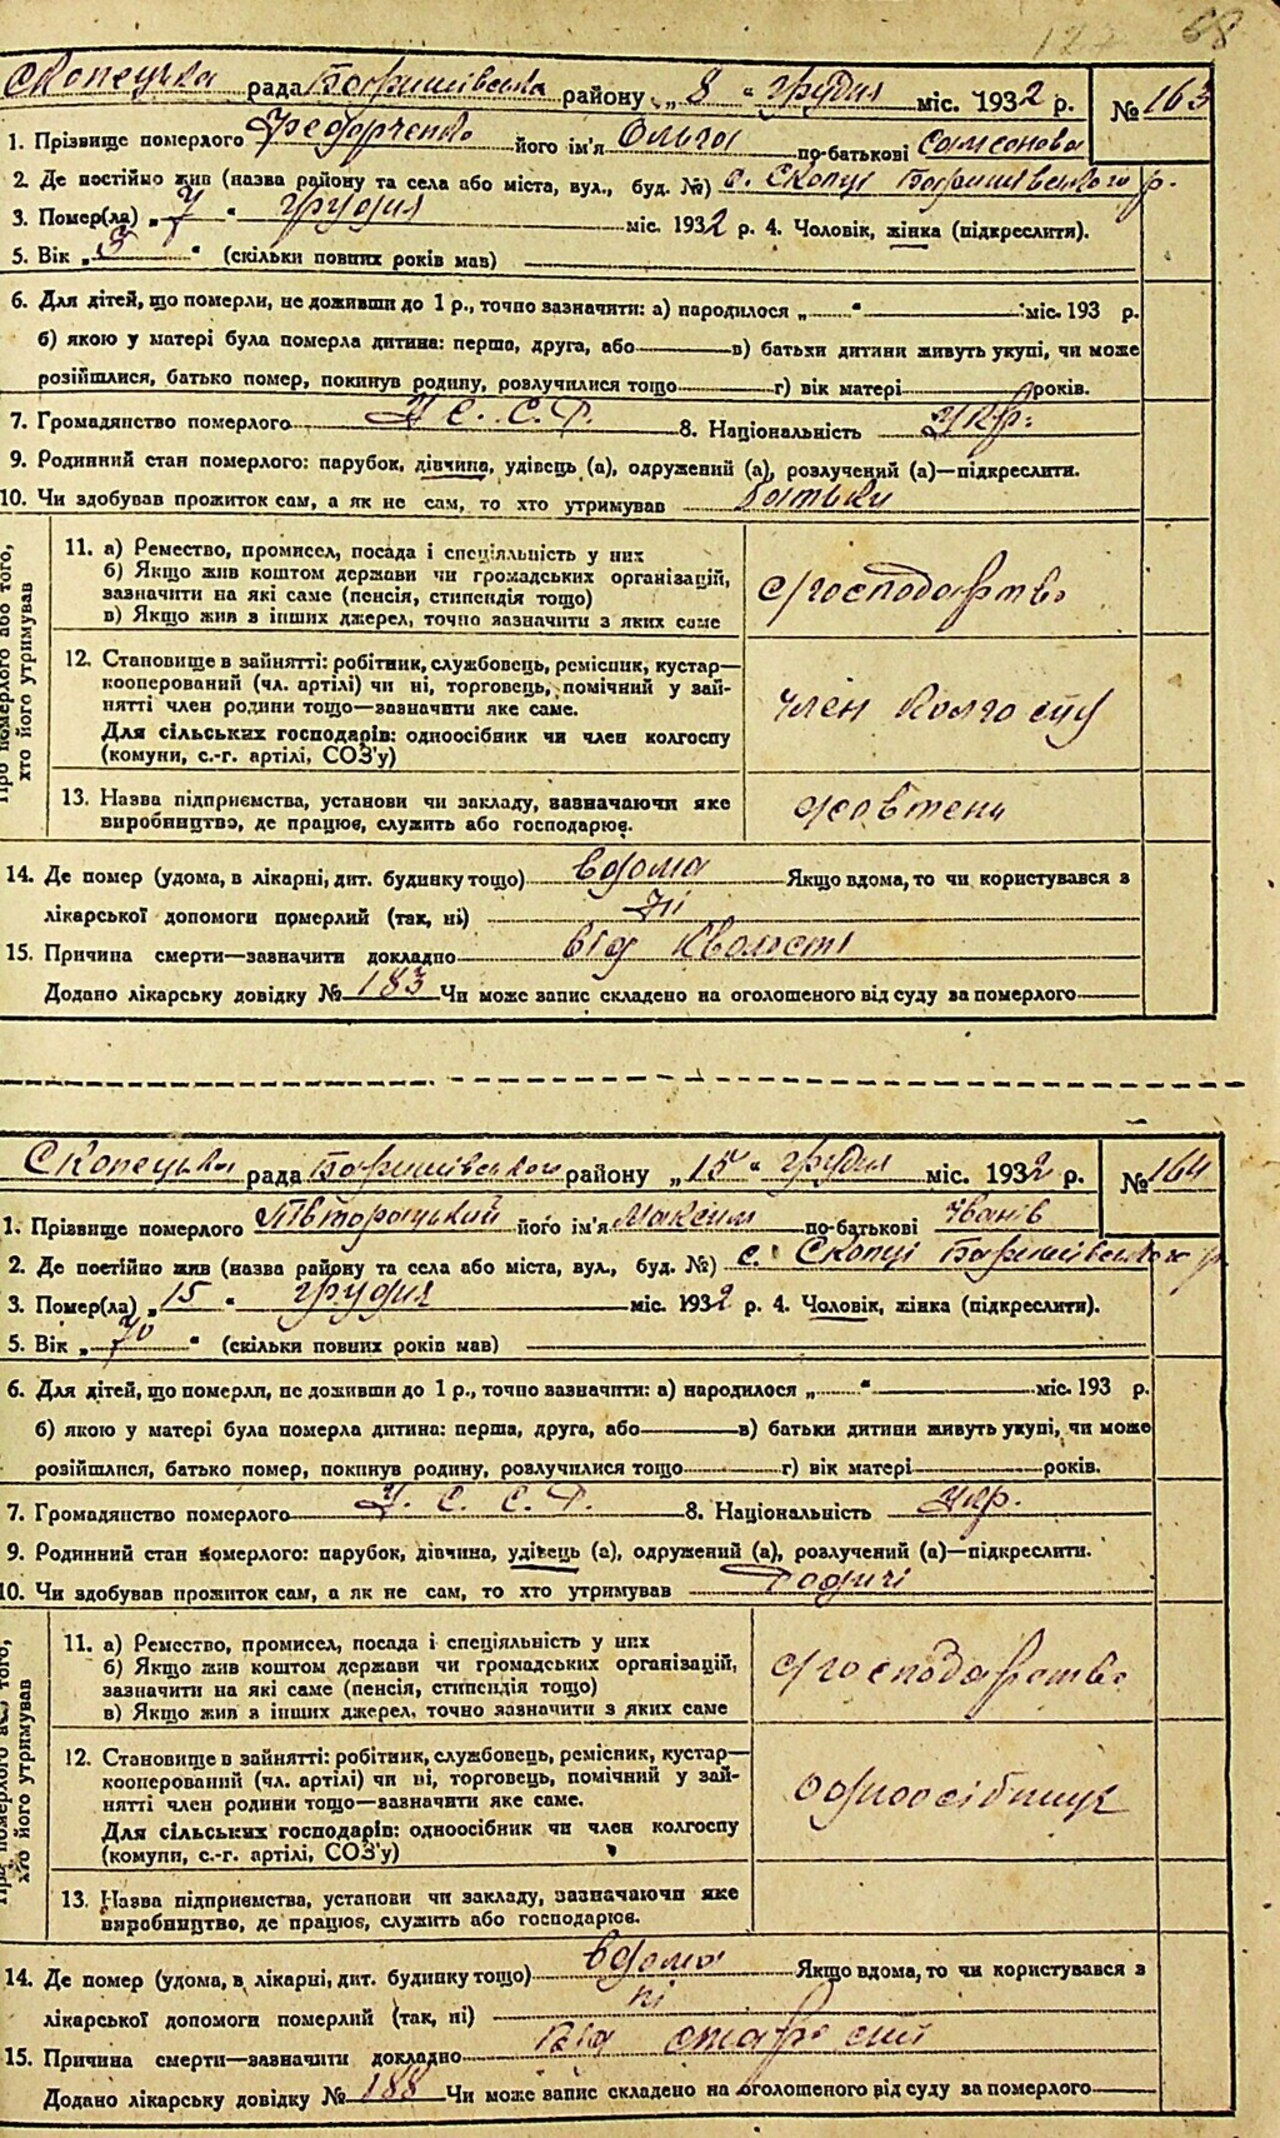 68
Скопецька рада Баришівська району „ 8 " грудня міс. 1932 р. № 163
1. Прізвище померлого Федорченко його ім'я Ольга по-батькові Самсонова
2. Де постійно жив (назва району та села або міста, вул., буд. №) с. Скопці Баришівського р.
3. Помер(ла) „ 7 " грудня міс. 1932 р. 4. Чоловік, жінка (підкреслити).
5. Вік „ " (скільки повних років мав)
6. Для дітей, що померли, не доживши до 1 р., точно зазначити: а) народилося „ " міс. 193 р.
б) якою у матері була померла дитина: перша, друга, або в) батьки дитини живуть укупі, чи може
розійшлися, батько помер, покинув родину, розлучилися тощо г) вік матері років.
7. Громадянство померлого У.С.С.Р. 8. Національність Укр.
9. Родинний стан померлого: парубок, дівчина, удівець (а), одружений (а), розлучений (а)—підкреслити.
10. Чи здобував прожиток сам, а як не сам, то хто утримував батьки
Про померлого або того,
хто його утримував
11. а) Ремество, промисел, посада і спеціяльність у них
б) Якщо жив коштом держави чи громадських організацій,
зазначити на які саме (пенсія, стипендія тощо)
в) Якщо жив з інших джерел, точно зазначити з яких саме
с/господарство
12. Становище в зайнятті: робітник, службовець, ремісник, кустар—
кооперований (чл. артілі) чи ні, торговець, помічний у зай-
нятті член родини тощо—зазначити яке саме.
Для сільських господарів: одноосібник чи член колгоспу
(комуни, с.-г. артілі, СОЗ'у)
член колгоспу
13. Назва підприємства, установи чи закладу, зазначаючи яке
виробництво, де працює, служить або господарює.
жовтень
14. Де помер (удома, в лікарні, дит. будинку тощо) вдома Якщо вдома, то чи користувався з
лікарської допомоги померлий (так, ні) ні
15. Причина смерти—зазначити докладно від кволості
Додано лікарську довідку № 183 Чи може запис складено на оголошеного від суду за померлого
Скопецька рада Баришівського району „ 15 " грудня міс. 1932 р. № 164
1. Прізвище померлого Півторацький його ім'я Максим по-батькові Іванів
2. Де постійно жив (назва району та села або міста, вул., буд. №) с. Скопці Баришівського р.
3. Помер(ла) „ 15 " грудня міс. 1932 р. 4. Чоловік, жінка (підкреслити).
5. Вік „ 70 " (скільки повних років мав)
6. Для дітей, що померли, не доживши до 1 р., точно зазначити: а) народилося „ " міс. 193 р.
б) якою у матері була померла дитина: перша, друга, або в) батьки дитини живуть укупі, чи може
розійшлися, батько помер, покинув родину, розлучилися тощо г) вік матері років.
7. Громадянство померлого У.С.С.Р. 8. Національність Укр.
9. Родинний стан померлого: парубок, дівчина, удівець (а), одружений (а), розлучений (а)—підкреслити.
10. Чи здобував прожиток сам, а як не сам, то хто утримував Родичі
Про померлого або того,
хто його утримував
11. а) Ремество, промисел, посада і спеціяльність у них
б) Якщо жив коштом держави чи громадських організацій,
зазначити на які саме (пенсія, стипендія тощо)
в) Якщо жив з інших джерел, точно зазначити з яких саме
с/господарство
12. Становище в зайнятті: робітник, службовець, ремісник, кустар—
кооперований (чл. артілі) чи ні, торговець, помічний у зай-
нятті член родини тощо—зазначити яке саме.
Для сільських господарів: одноосібник чи член колгоспу
(комуни, с.-г. артілі, СОЗ'у)
одноосібник
13. Назва підприємства, установи чи закладу, зазначаючи яке
виробництво, де працює, служить або господарює.
14. Де помер (удома, в лікарні, дит. будинку тощо) вдома Якщо вдома, то чи користувався з
лікарської допомоги померлий (так, ні) ні
15. Причина смерти—зазначити докладно від старости
Додано лікарську довідку № 188 Чи може запис складено на оголошеного від суду за померлого